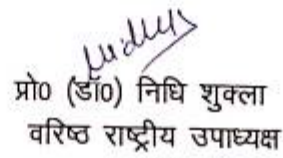 प्रो० (डॉ०) निधि शुक्ला
वरिष्ठ राष्ट्रीय उपाध्यक्ष